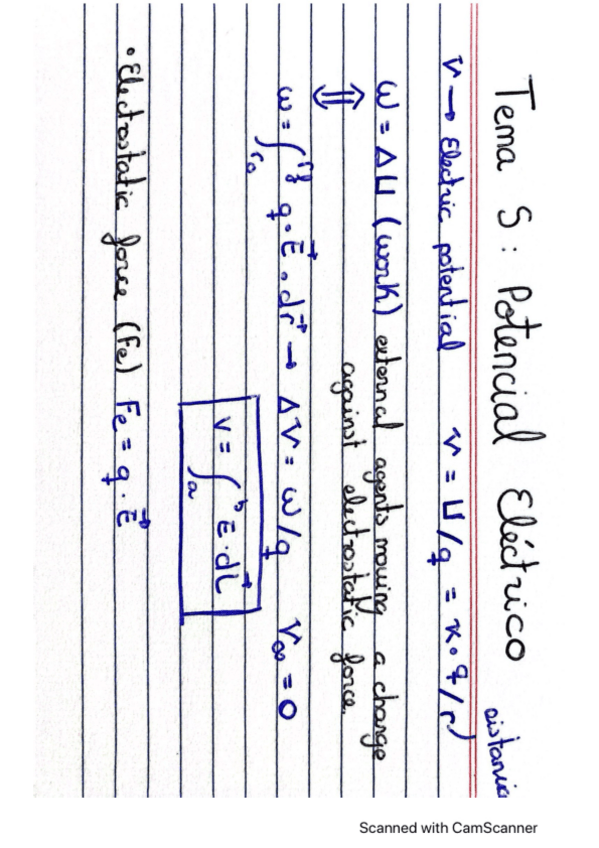 Tema 5: Potencial Eléctrico
V → Electric potential V = U/q = K·q/r distancia
W = ΔU (work) external agents moving a change
against electrostatic force.
⇕
W = ∫r₀^rf q·E⃗·dr⃗ → ΔV = W/q V∞ = 0
V = ∫a^b E·dL⃗
• Electrostatic force (Fe) Fe = q·E⃗
Scanned with CamScanner